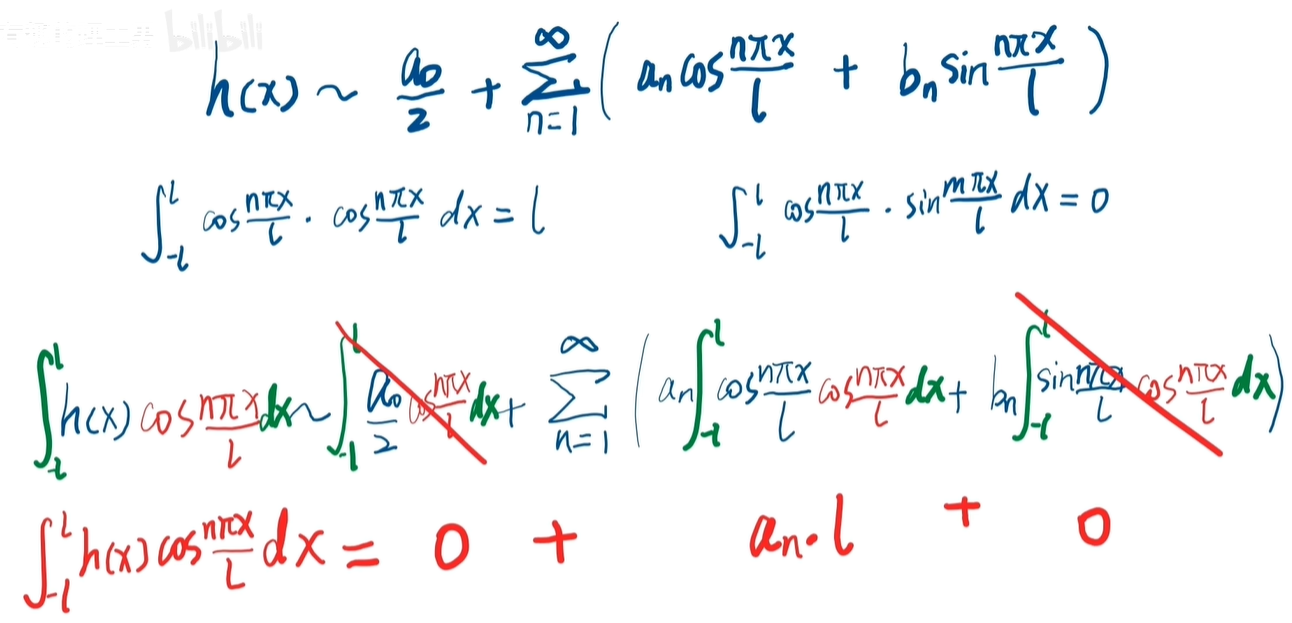 bilibili
h(x) ~ a₀/2 + ∑_{n=1}^{∞} ( aₙ cos nπx/l + bₙ sin nπx/l )
∫_{-l}^{l} cos nπx/l · cos nπx/l dx = l    ∫_{-l}^{l} cos nπx/l · sin mπx/l dx = 0
∫_{-l}^{l} h(x) cos nπx/l dx ~ ∫_{-l}^{l} a₀/2 cos nπx/l dx + ∑_{n=1}^{∞} ( aₙ ∫_{-l}^{l} cos nπx/l cos nπx/l dx + bₙ ∫_{-l}^{l} sin nπx/l cos nπx/l dx )
∫_{-l}^{l} h(x) cos nπx/l dx = 0 + aₙ·l + 0